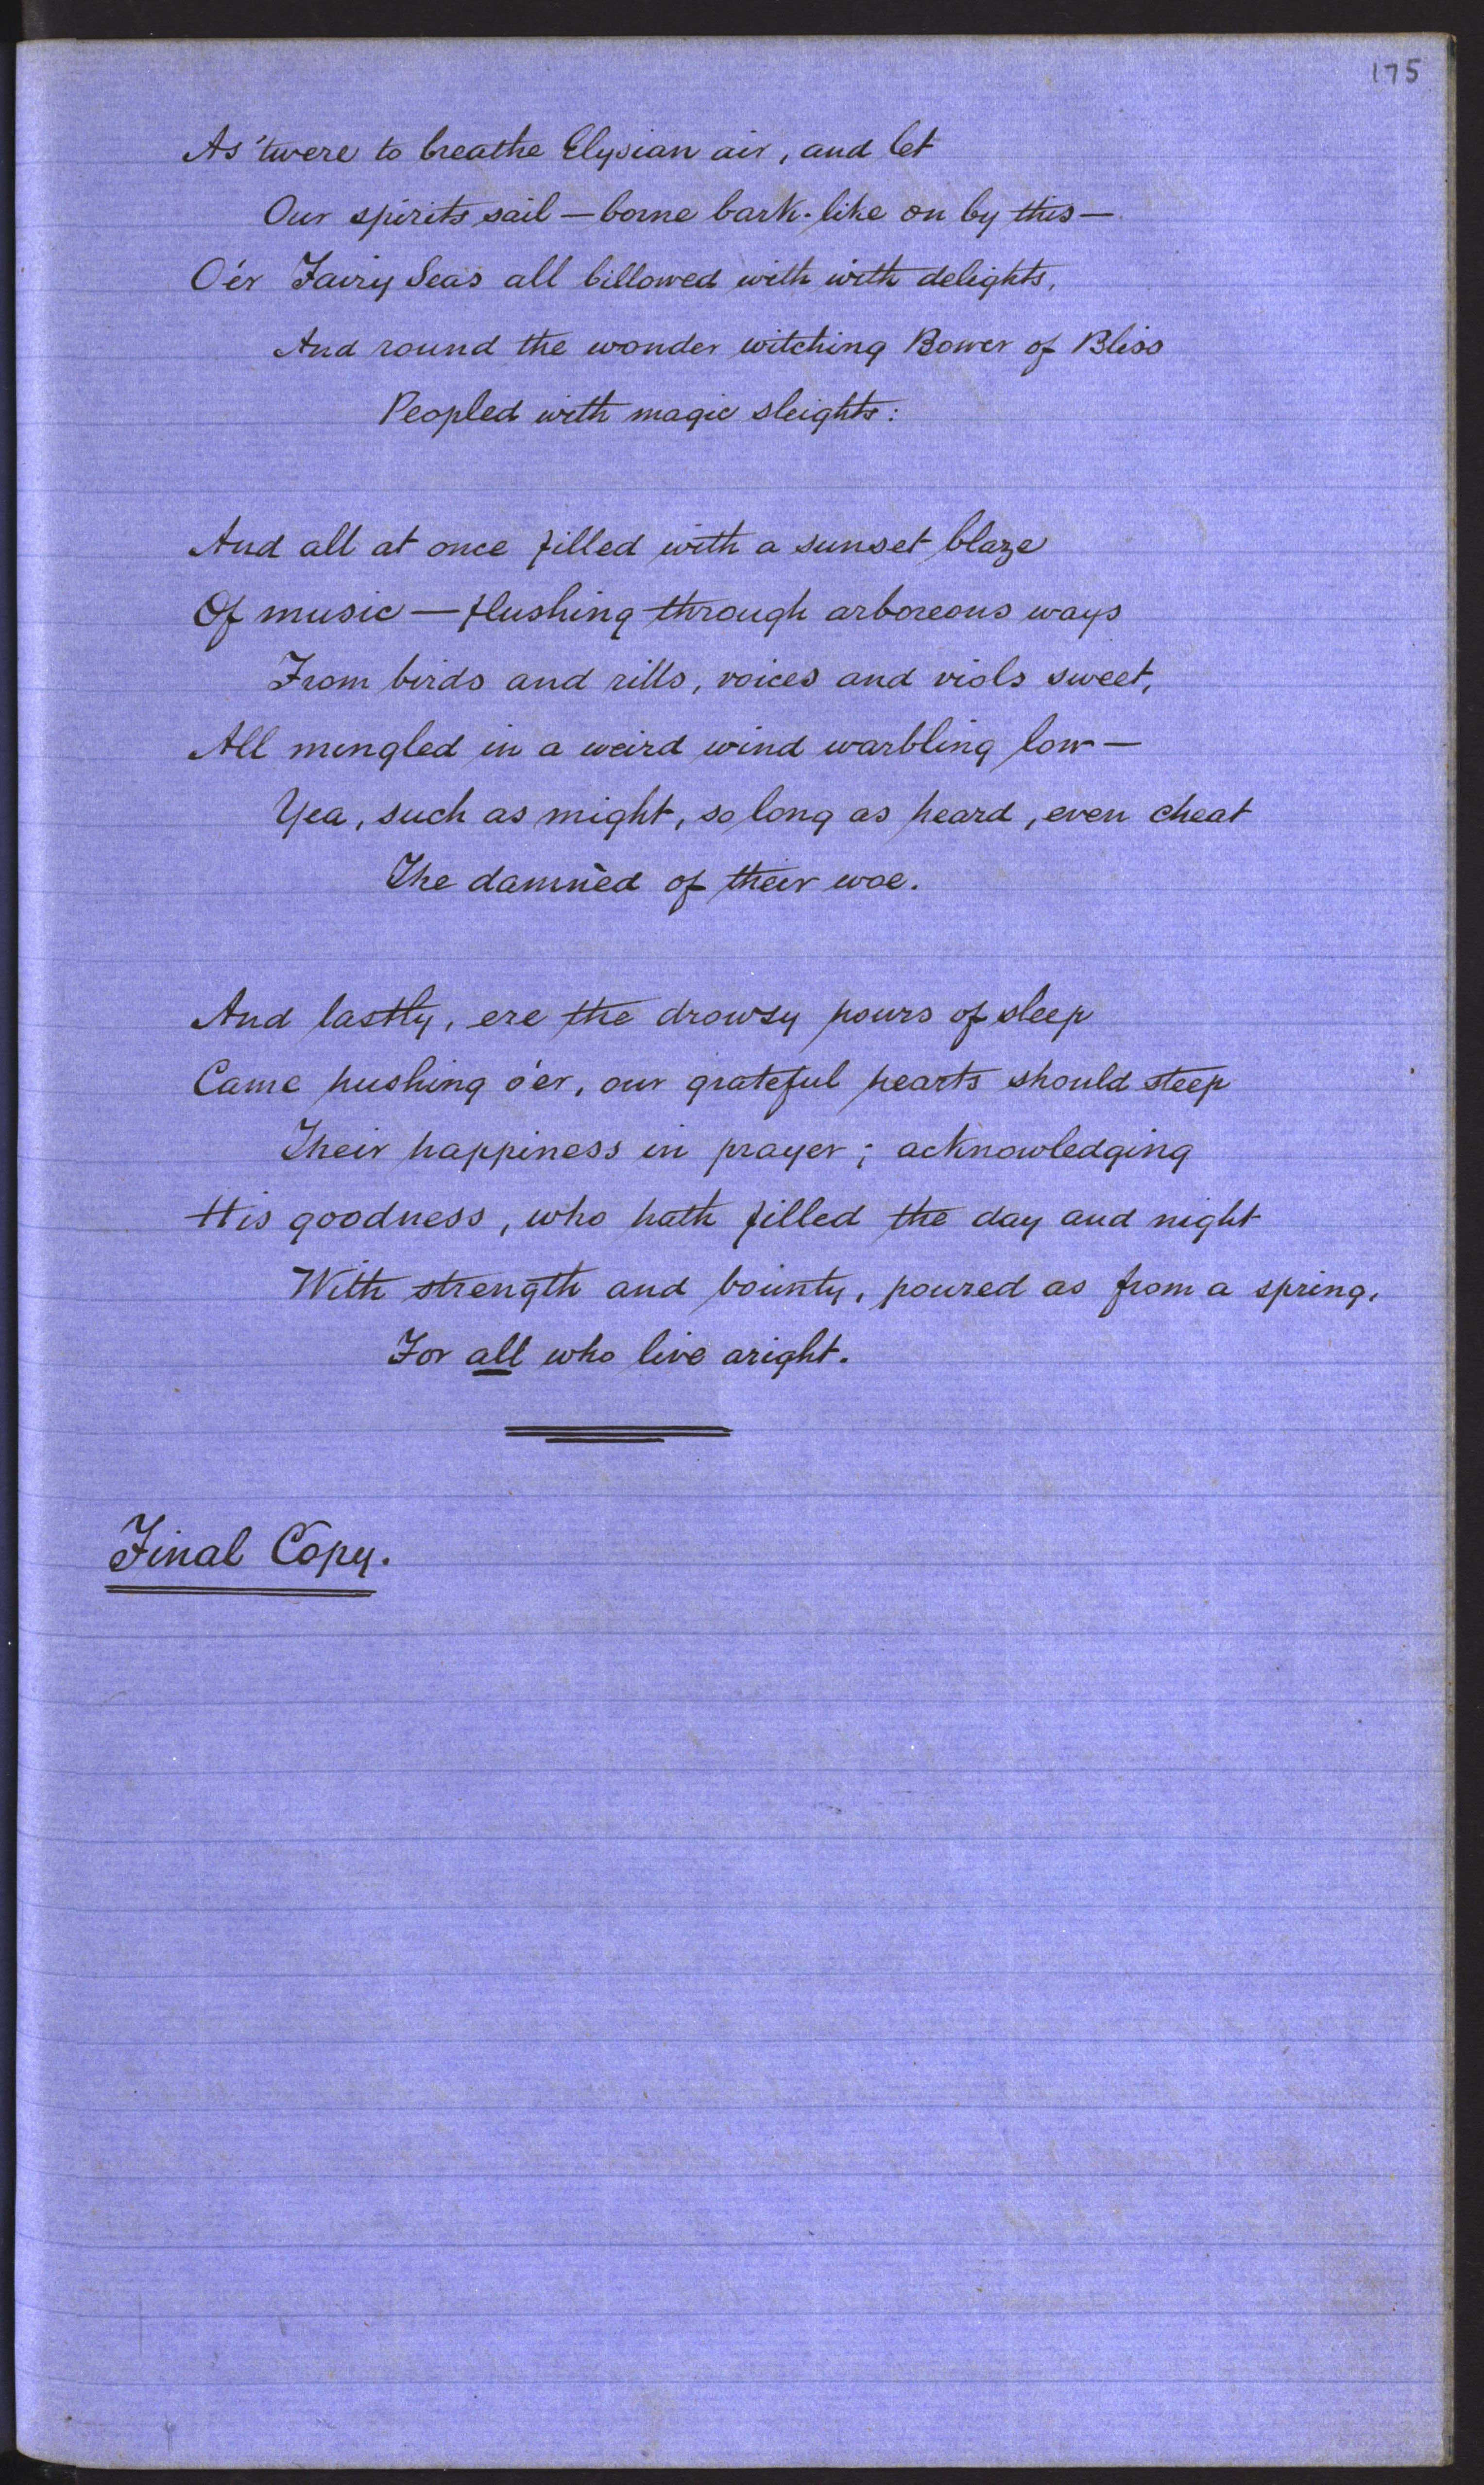 175
As 'twere to breathe Elysian air, and let
Our spirits sail — borne bark-like on by this —
O'er Fairy Seas all billowed with with delights,
And round the wonder witching Bower of Bliss
Peopled with magic sleights:
And all at once filled with a sunset blaze
Of music — flushing through arboreous ways
From birds and rills, voices and viols sweet,
All mingled in a weird wind warbling low —
Yea, such as might, so long as heard, even cheat
The damnèd of their woe.
And lastly, ere the drowsy hours of sleep
Came hushing o'er, our grateful hearts should steep
Their happiness in prayer; acknowledging
His goodness, who hath filled the day and night
With strength and bounty, poured as from a spring,
For all who live aright.
Final Copy.